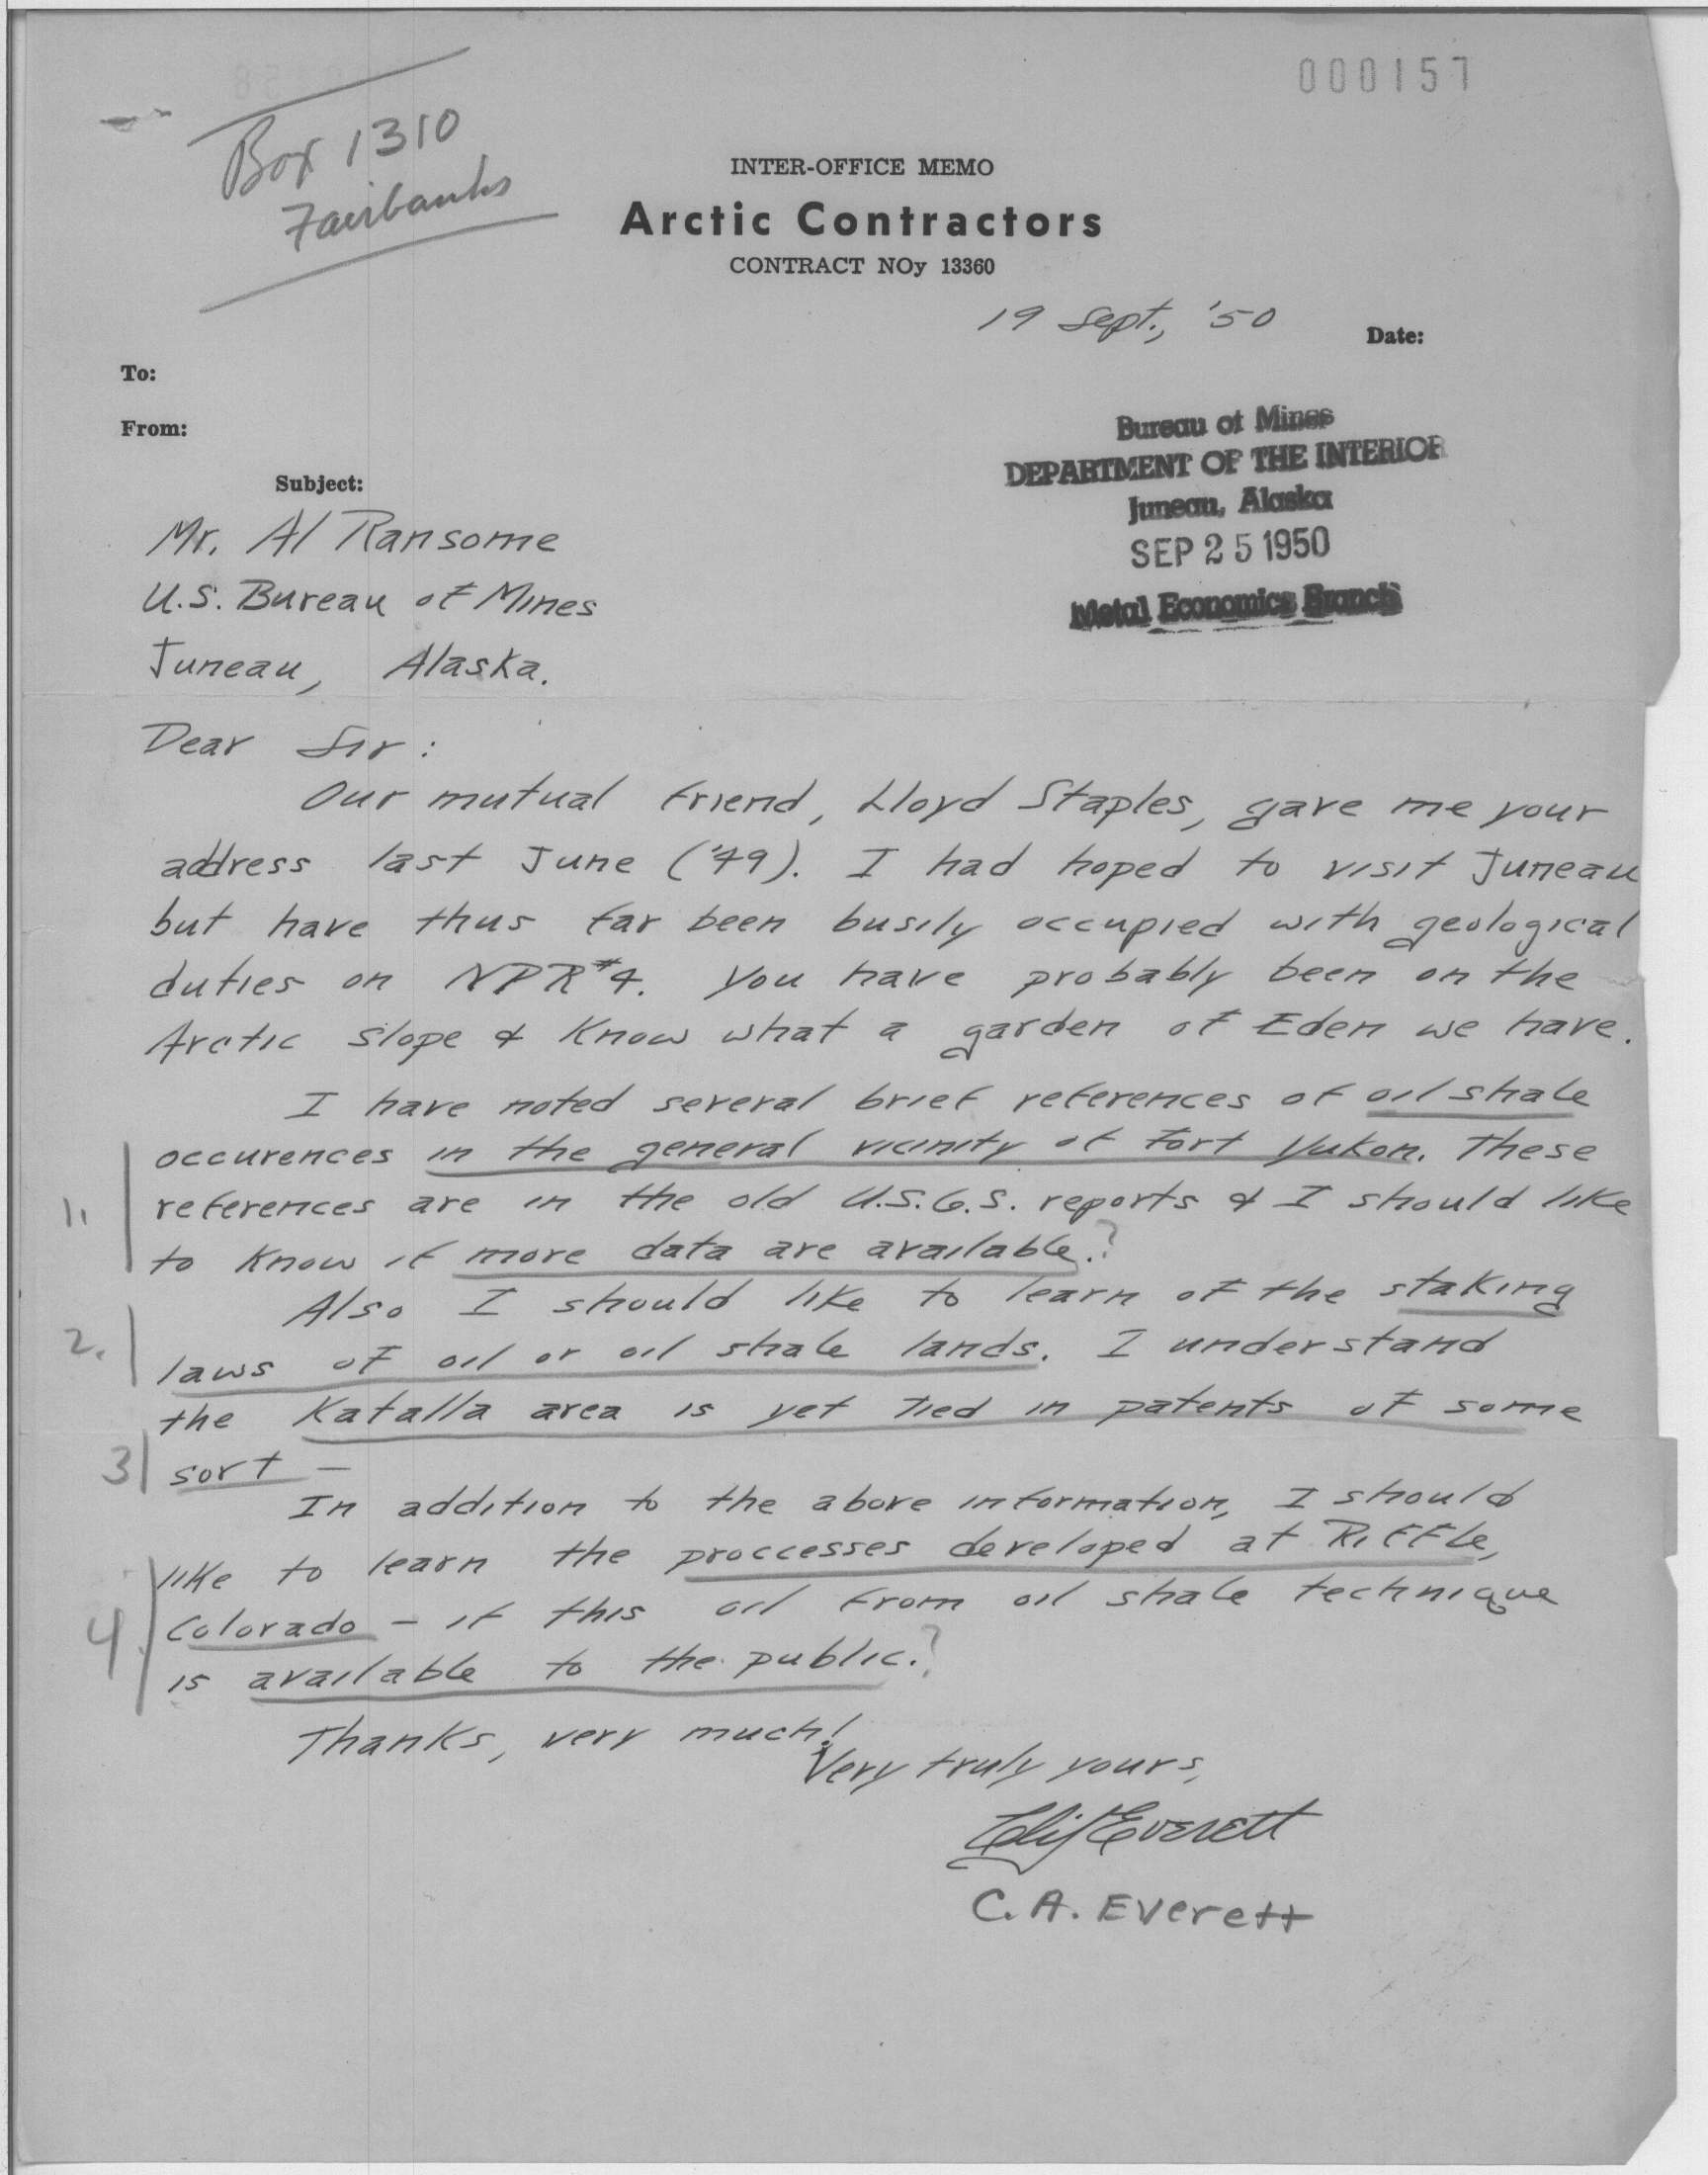 000157
Box 1310
Fairbanks
INTER-OFFICE MEMO
Arctic Contractors
CONTRACT NOy 13360
19 Sept., '50
Date:
To:
From:
Subject:
Bureau of Mines
DEPARTMENT OF THE INTERIOR
Juneau, Alaska
SEP 25 1950
Metal Economics Branch
Mr. Al Ransome
U.S. Bureau of Mines
Juneau, Alaska.
Dear Sir:
Our mutual friend, Lloyd Staples, gave me your
address last June ('49). I had hoped to visit Juneau
but have thus far been busily occupied with geological
duties on NPR #4. You have probably been on the
Arctic Slope & Know what a garden of Eden we have.
I have noted several brief references of oil shale
occurences in the general vicinity of Fort Yukon. These
1. references are in the old U.S.G.S. reports & I should like
to know if more data are available.?
Also I should like to learn of the staking
2. laws of oil or oil shale lands. I understand
the Katalla area is yet tied in patents of some
3 sort —
In addition to the above information, I should
like to learn the proccesses developed at Riffle,
4. Colorado – if this oil from oil shale technique
is available to the public.?
Thanks, very much!
Very truly yours,
Clif Everett
C. A. Everett